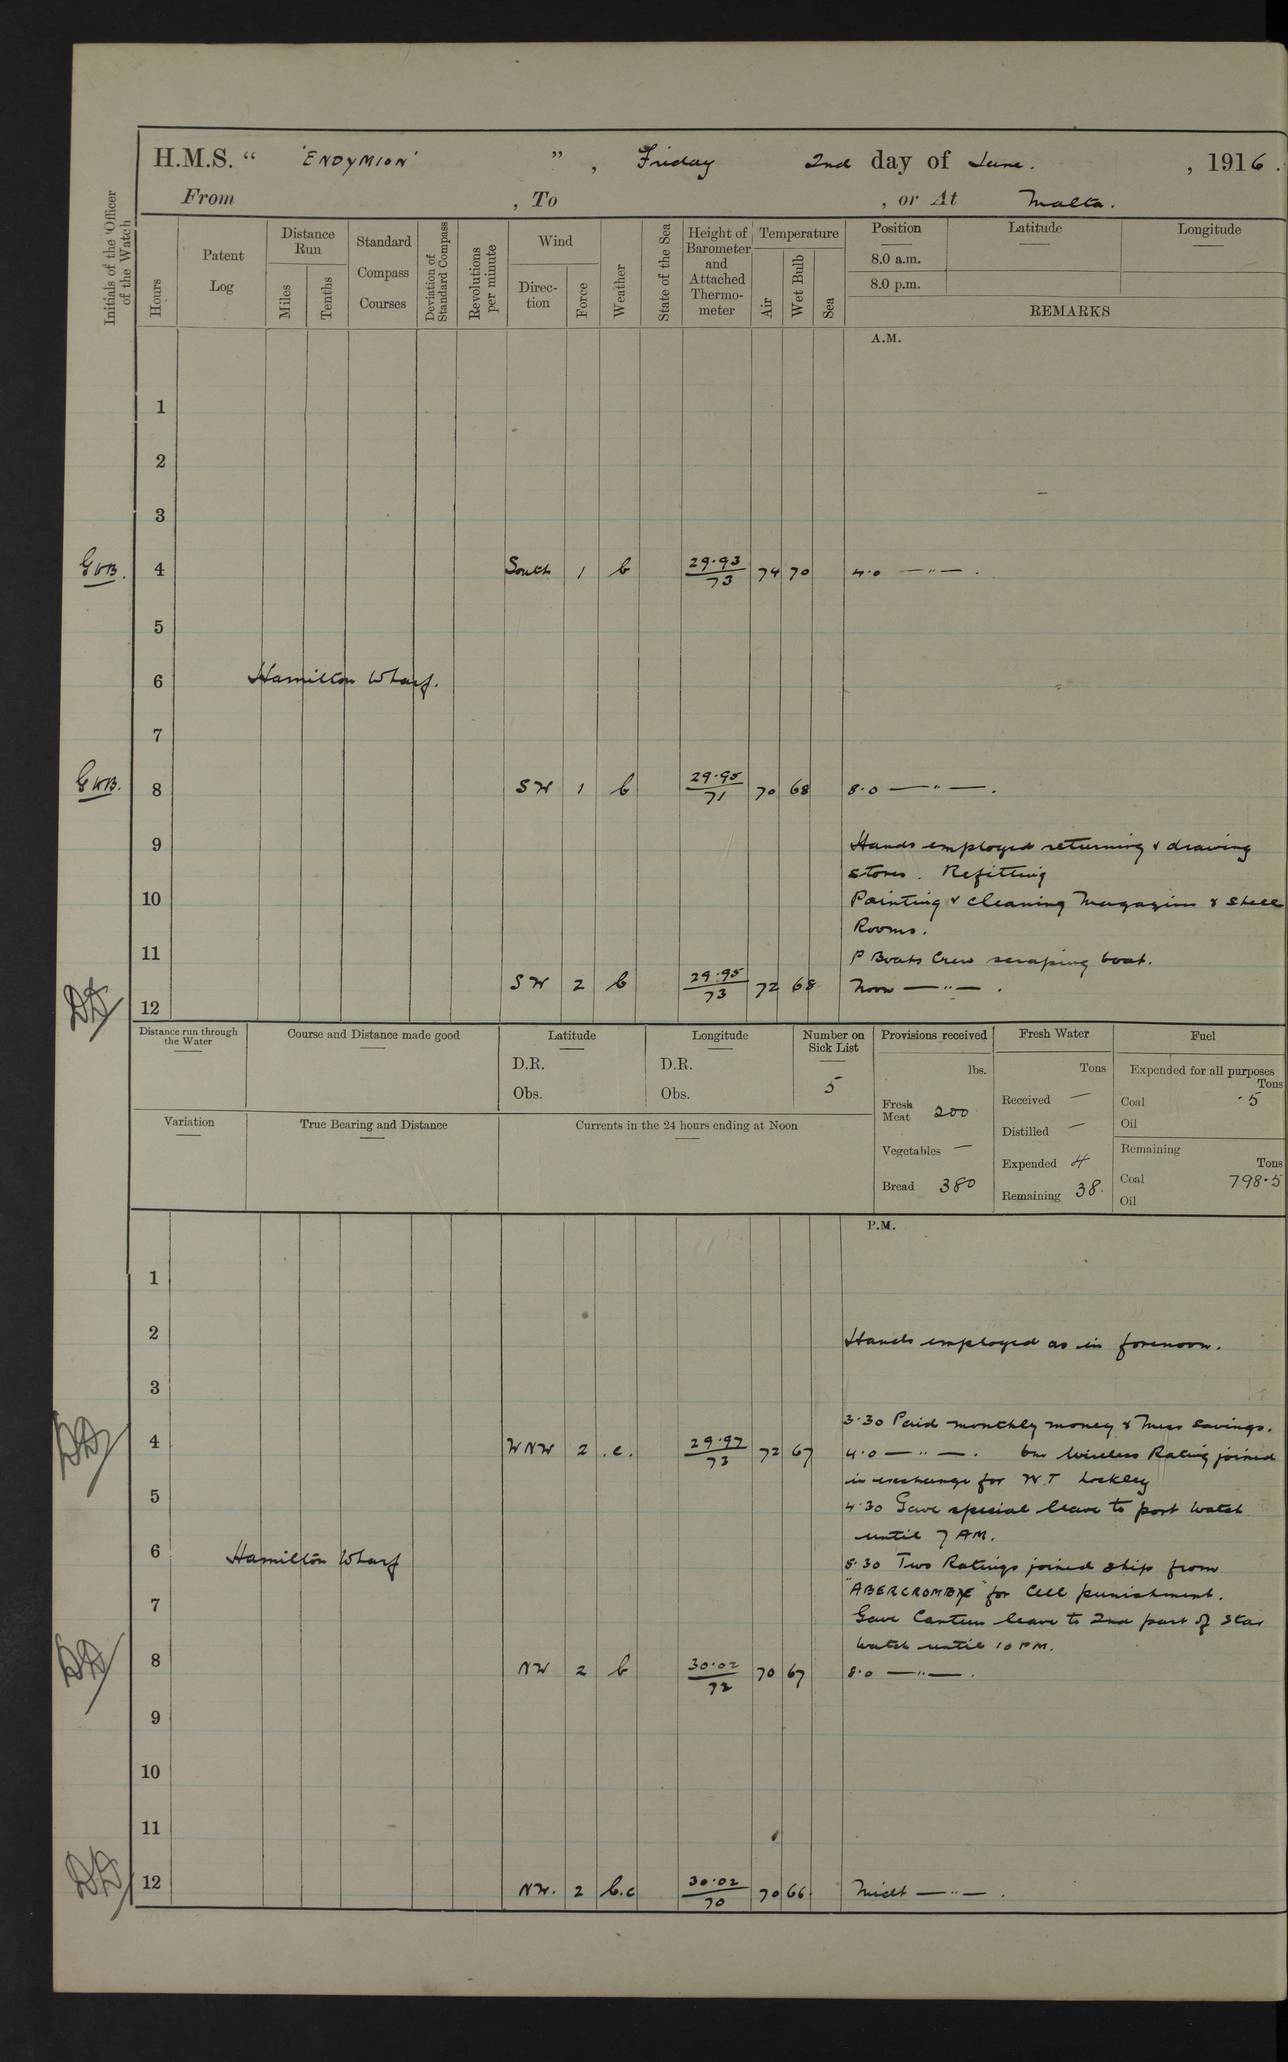 H.M.S. “ 'ENDYMION' ” , Friday 2nd day of June. , 1916.
From , To , or At Malta.
Initials of the Officer of the Watch
Hours
Patent Log
Distance Run
Miles
Tenths
Standard Compass Courses
Deviation of Standard Compass
Revolutions per minute
Wind
Direction
Force
Weather
State of the Sea
Height of Barometer and Attached Thermometer
Temperature
Air
Wet Bulb
Sea
Position Latitude Longitude
8.0 a.m.
8.0 p.m.
REMARKS
A.M.
1
2
3
GWB. 4 South 1 b 29.93/73 74 70 4.0 — " — .
5
6 Hamilton Wharf.
7
GWB. 8 SW 1 b 29.95/71 70 68 8.0 — " — .
9 Hands employed returning & drawing
stores. Refitting
10 Painting & cleaning Magazines & Shell
Rooms.
11 P Boats Crew scraping boat.
12 SW 2 b 29.95/73 72 68 Noon — " — .
Distance run through the Water
Course and Distance made good
Latitude
D.R.
Obs.
Longitude
D.R.
Obs.
Number on Sick List
5
Provisions received
lbs.
Fresh Meat 200
Vegetables —
Bread 380
Fresh Water
Tons
Received —
Distilled —
Expended 4
Remaining 38.
Fuel
Expended for all purposes
Tons
Coal .5
Oil
Remaining
Tons
Coal 798.5
Oil
Variation
True Bearing and Distance
Currents in the 24 hours ending at Noon
P.M.
1
2 Hands employed as in forenoon.
3
3.30 Paid monthly money & Mess Savings.
4 WNW 2 .c. 29.97/73 72 67 4.0 — " — . One Wireless Rating joined
in exchange for W.T Lockley
5 4.30 Gave special leave to port watch
until 7 AM.
6 Hamilton Wharf 5.30 Two Ratings joined ship from
"ABERCROMBIE" for Cell punishment.
7 Gave Canteen leave to 2nd part of Star
watch until 10 PM.
8 NW 2 b 30.02/72 70 67 8.0 — " — .
9
10
11
12 NW. 2 b.c 30.02/70 70 66 Midt — " — .